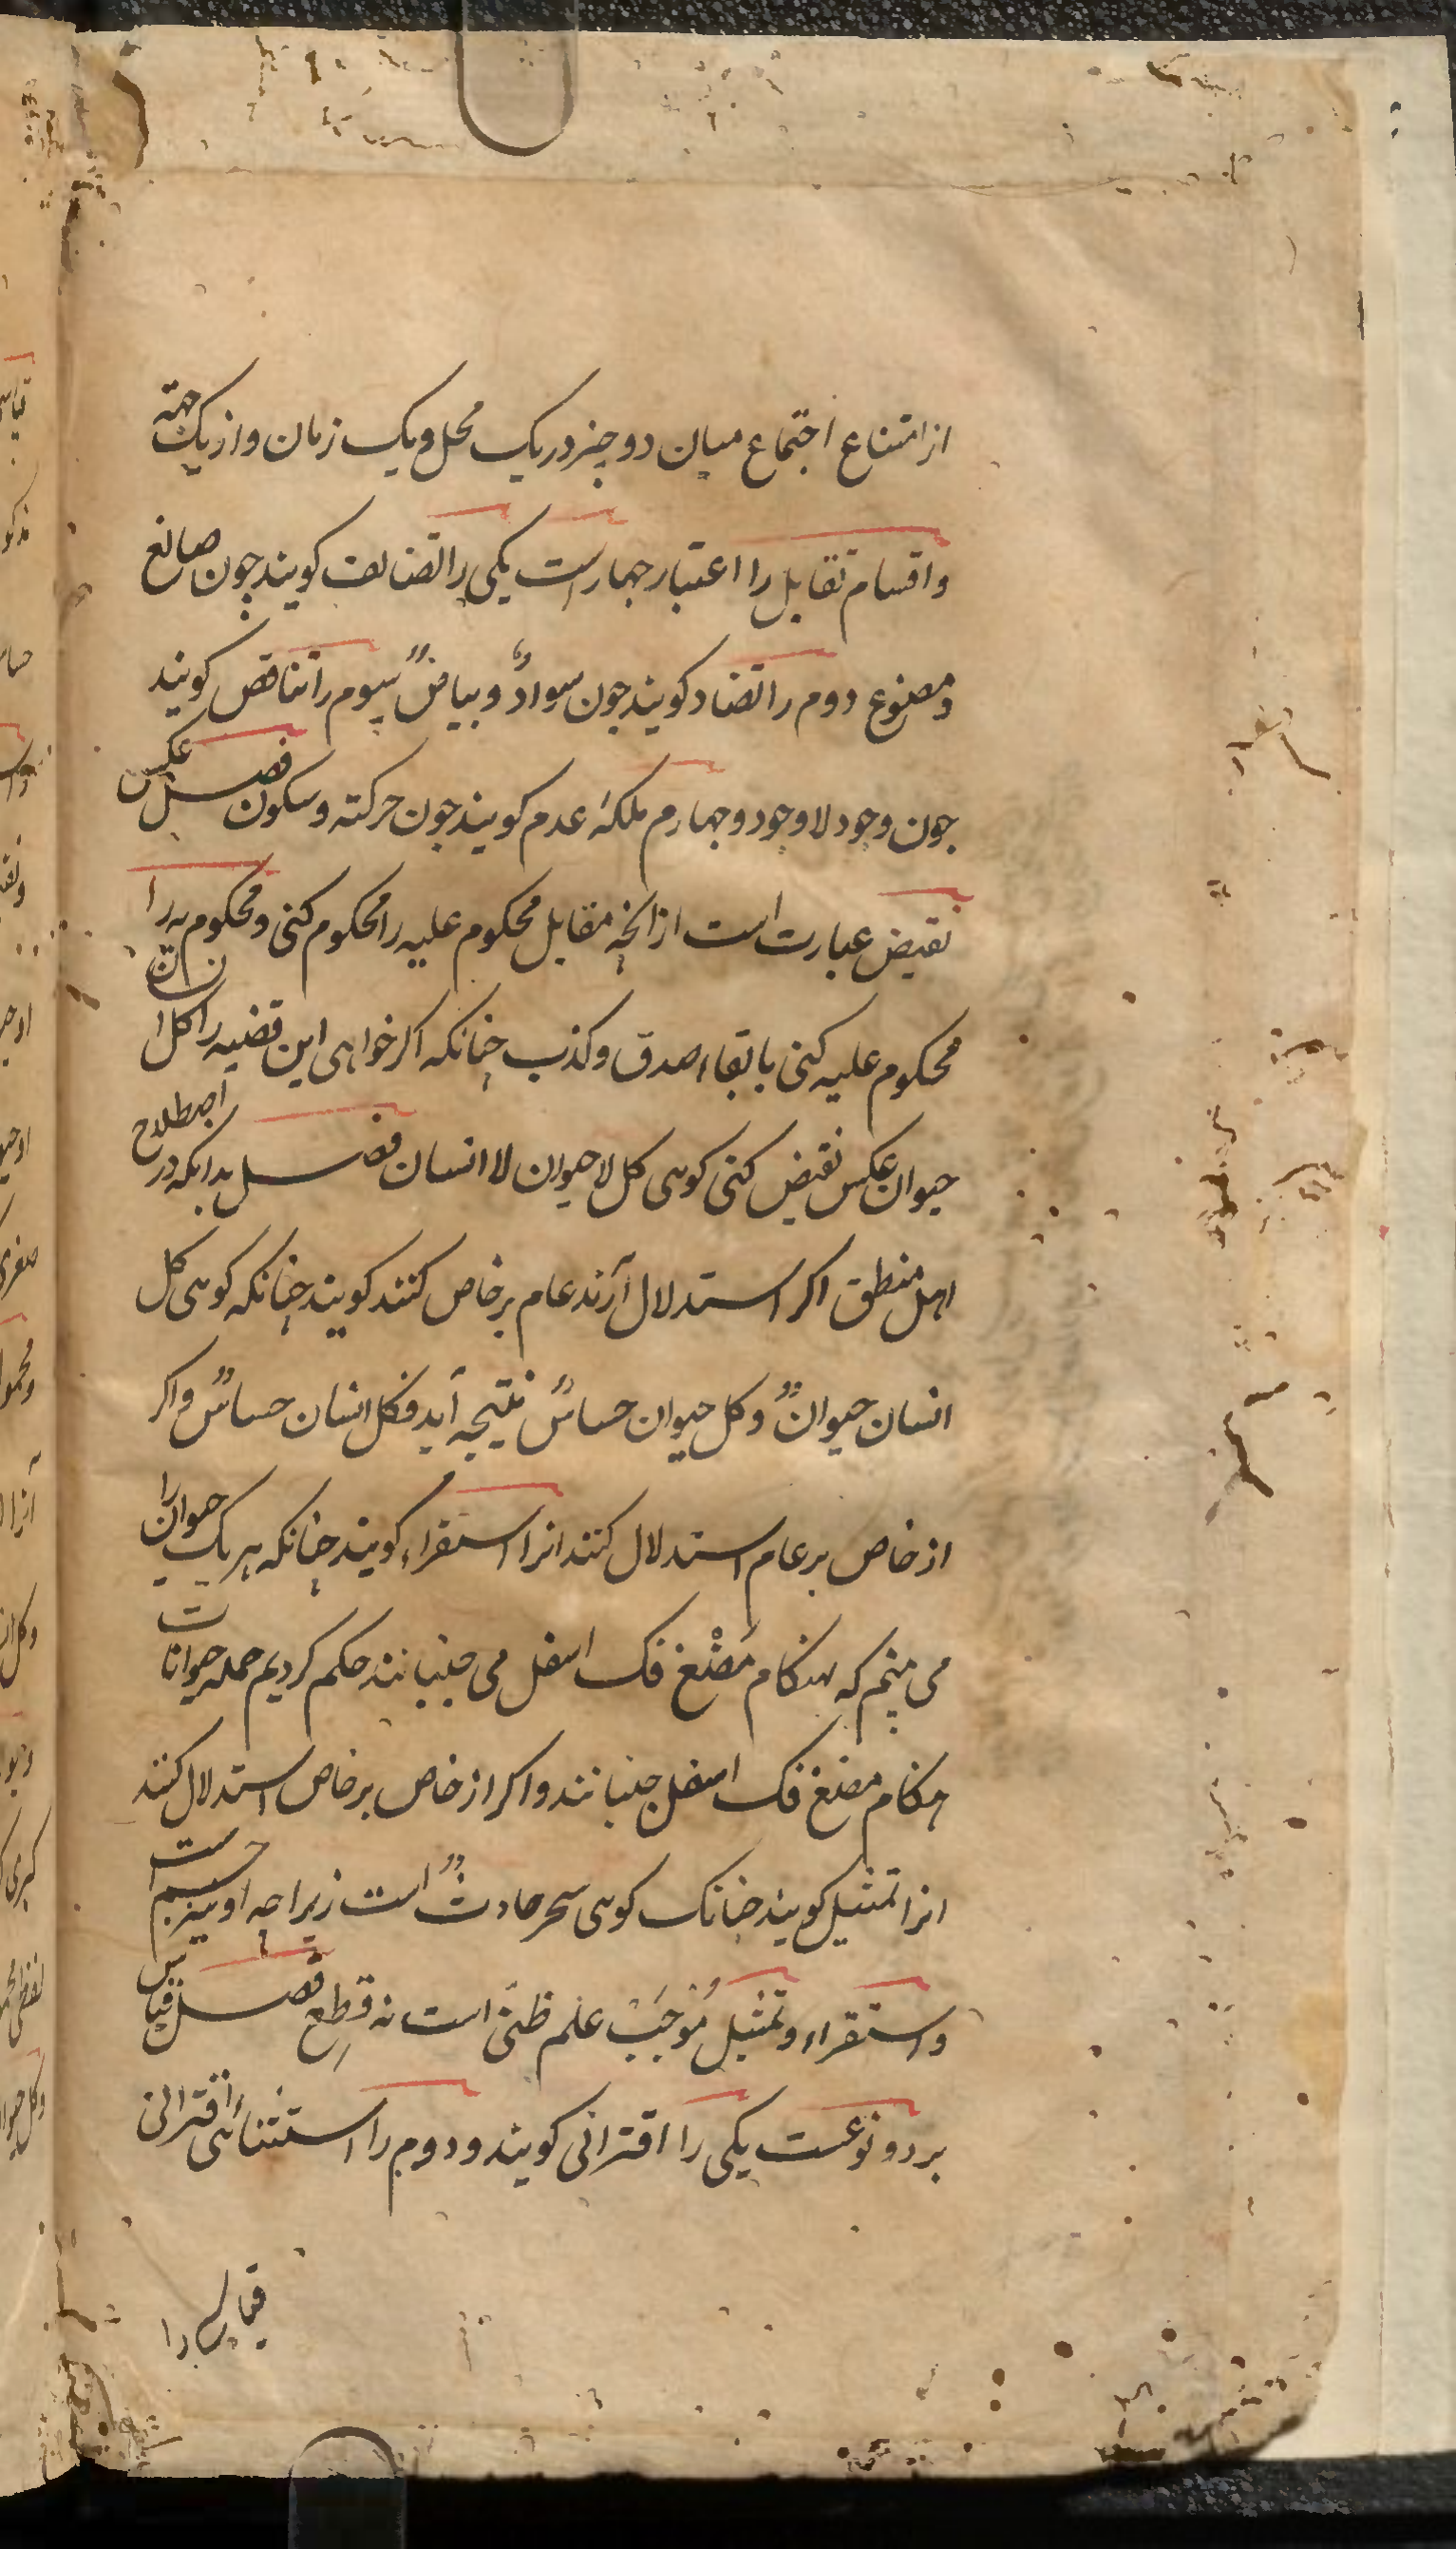 از امتناع اجتماع میان دو چیز در یک محل و یک زمان و از یک جهة
و اقسام تقابل را اعتبار چهار است یکی را تضایف کویند چون صانع
و مصنوع دوم را تضاد کویند چون سوادٌ و بیاضٌ سیوم را تناقض کویند
چون وجود لا وجود و چهارم ملکهٔ عدم کویند چون حرکته و سکون فصل عکس
نقیض عبارت است از انچه مقابل محکوم علیه را محکوم کنی و محکوم به را
محکوم علیه کنی با بقاء صدق و کذب چنانکه اکر خواهی این قضیه را کل انسان
حیوان عکس نقیض کنی کوهی کل لا حیوان لا انسان فصل بدانکه در اصطلاح
اهل منطق اکر استدلال آرند عام بر خاص کنند کویند چنانکه کوهی کل
انسان حیوانٌ و کل حیوان حساسٌ نتیجه آید فکل انسان حساسٌ و اکر
از خاص بر عام استدلال کنند انرا استقراء کویند چنانکه هر یک حیوان را
می بینم که هنکام مَضْغ فک اسفل می جنبانند حکم کردیم جمله حیوانات
هنکام مضغ فک اسفل جنبانند و اکر از خاص بر خاص استدلال کنند
انرا تمثیل کویند چنانک کوهی سحر حادثٌ است زیرا چه او نیز جسم است
و استقراء و تمثیل مُوْجَبْ علم ظنی است نه قطع فصل قیاس
بر دو نوعست یکی را اقترانی کویند و دوم را استثنائی اقترانی
قیاس را